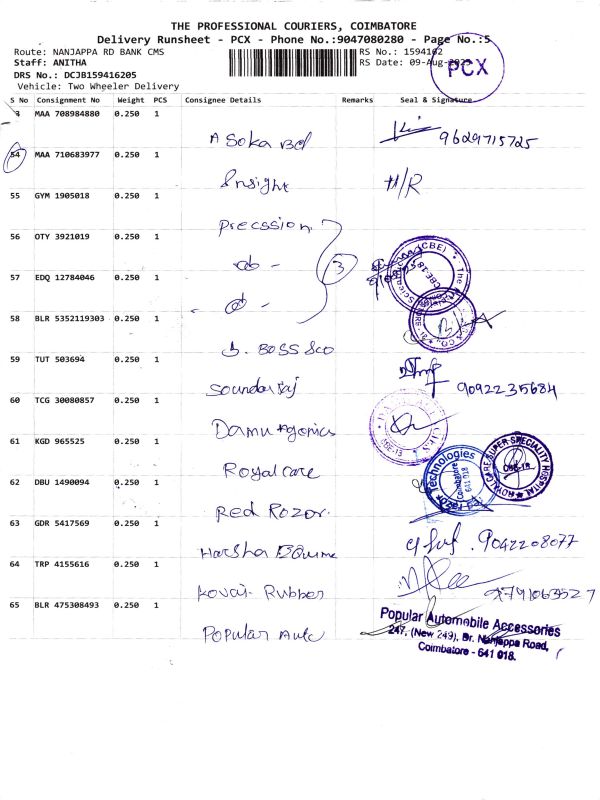 THE PROFESSIONAL COURIERS, COIMBATORE
Delivery Runsheet - PCX - Phone No.:9047080280 - Page No.:5
Route: NANJAPPA RD BANK CMS RS No.: 1594162
Staff: ANITHA RS Date: 09-Aug
DRS No.: DCJB159416205 PCX
Vehicle: Two Wheeler Delivery
S No Consignment No Weight PCS Consignee Details Remarks Seal & Signature
3 MAA 708984880 0.250 1
Asoka Bd 9629715725
54 MAA 710683977 0.250 1
Insight H/R
55 GYM 1905018 0.250 1
Precssion
56 OTY 3921019 0.250 1
do - 3
57 EDQ 12784046 0.250 1
do -
58 BLR 5352119303 0.250 1
J. BOSS &co
59 TUT 503694 0.250 1
Soundarraj 9092235684
60 TCG 30080857 0.250 1
Damu
61 KGD 965525 0.250 1
Royal care
ROYAL CARE SUPER SPECIALITY HOSPITAL
Technologies
Coimbatore
641 018
62 DBU 1490094 0.250 1
Red Rozor.
63 GDR 5417569 0.250 1
Harsha 9042208077
64 TRP 4155616 0.250 1
Kovai Rubber 9791063527
65 BLR 475308493 0.250 1
Popular Auto
Popular Automobile Accessories
247, (New 249), Dr. Nanjappa Road,
Coimbatore - 641 018.